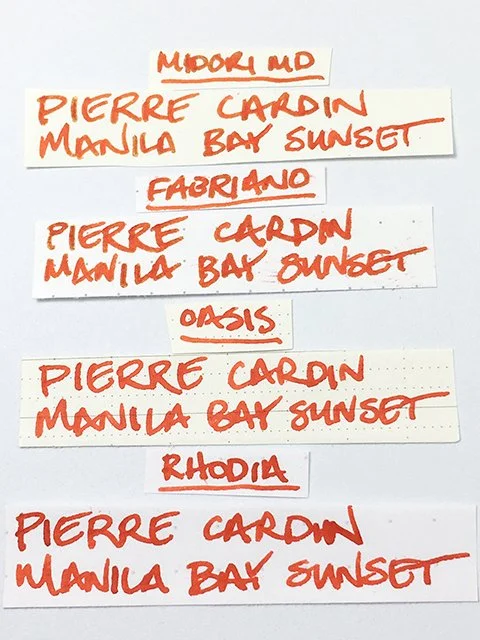 MIDORI MD
PIERRE CARDIN
MANILA BAY SUNSET
FABRIANO
PIERRE CARDIN
MANILA BAY SUNSET
OASIS
PIERRE CARDIN
MANILA BAY SUNSET
RHODIA
PIERRE CARDIN
MANILA BAY SUNSET